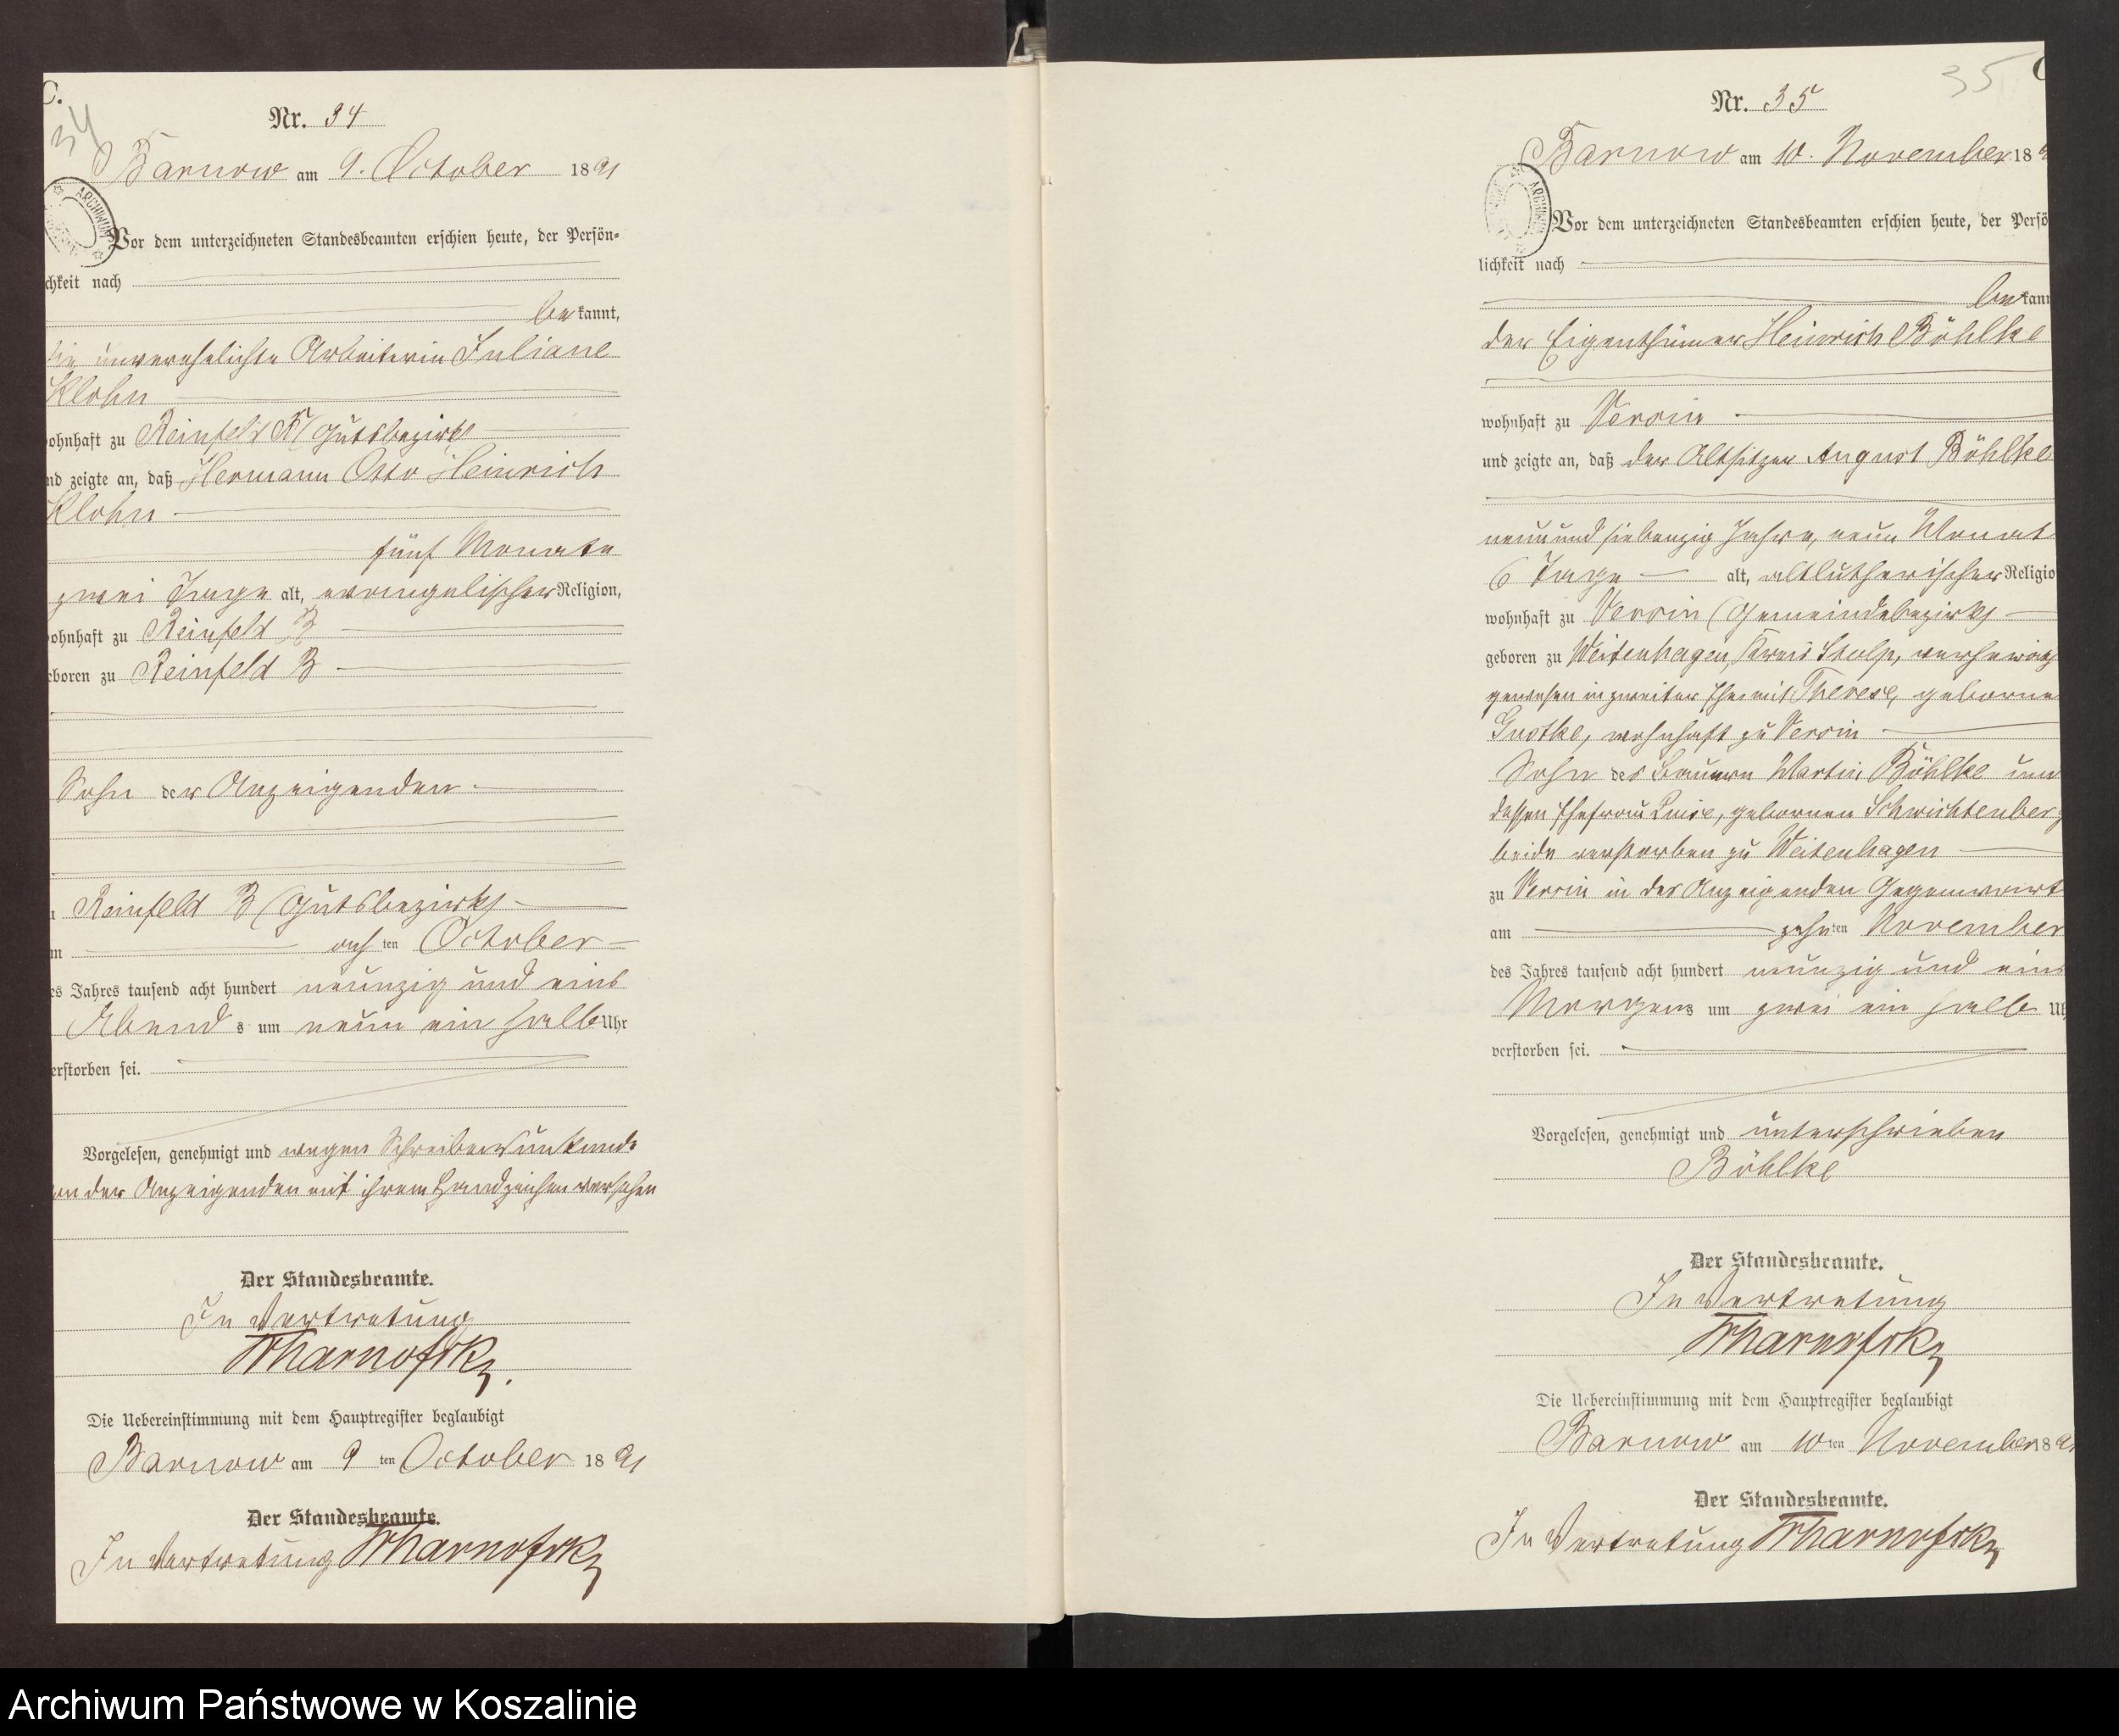 C.
34
Nr. 34
Barnow am 9. October 1891
ARCHIWUM
Vor dem unterzeichneten Standesbeamten erschien heute, der Persön-
chkeit nach
be kannt,
die unverehelichte Arbeiterin Juliane
Klohn
ohnhaft zu Reinfeld B Gutsbezirks
nd zeigte an, daß Hermann Otto Heinrich
Klohn
fünf Monate
zwei Tage alt, evangelischer Religion,
ohnhaft zu Reinfeld B
eboren zu Reinfeld B
Sohn der Anzeigenden
Reinfeld B (Gutsbezirks
m ach ten October
es Jahres tausend acht hundert neunzig und eins
Abend s um neun ein halb Uhr
erstorben sei.
Vorgelesen, genehmigt und wegen Schreibensunkunde
von der Anzeigenden mit ihrem Handzeichen versehen
Der Standesbeamte.
In Vertretung
Die Uebereinstimmung mit dem Hauptregister beglaubigt
Barnow am 9 ten October 1891
Der Standesbeamte.
In Vertretung
35
C
Nr. 35
Barnow am 10. November 18
ARCHIWUM
Vor dem unterzeichneten Standesbeamten erschien heute, der Persö
lichkeit nach
be kann
der Eigenthümer Heinrich Böhlke
wohnhaft zu Verrin
und zeigte an, daß der Altsitzer August Böhlke
neunundsiebenzig Jahre, neun Monat
6 Tage alt, altlutherischer Religio
wohnhaft zu Verrin (Gemeindebezirks
geboren zu Weitenhagen, Kreis Stolp, verheirath
gewesen in zweiter Ehe mit Therese, geborne
Grothe, wohnhaft zu Verrin
Sohn des Bauern Martin Böhlke und
dessen Ehefrau Luise, gebornen Schwichtenberg
beide verstorben zu Weitenhagen
zu Verrin in des Anzeigenden Gegenwart
am zehn ten November
des Jahres tausend acht hundert neunzig und eins
Morgens um zwei ein halb Uh
verstorben sei.
Vorgelesen, genehmigt und unterschrieben
Böhlke
Der Standesbeamte.
In Vertretung
Die Uebereinstimmung mit dem Hauptregister beglaubigt
Barnow am 10 ten November 1891
Der Standesbeamte.
In Vertretung
Archiwum Państwowe w Koszalinie